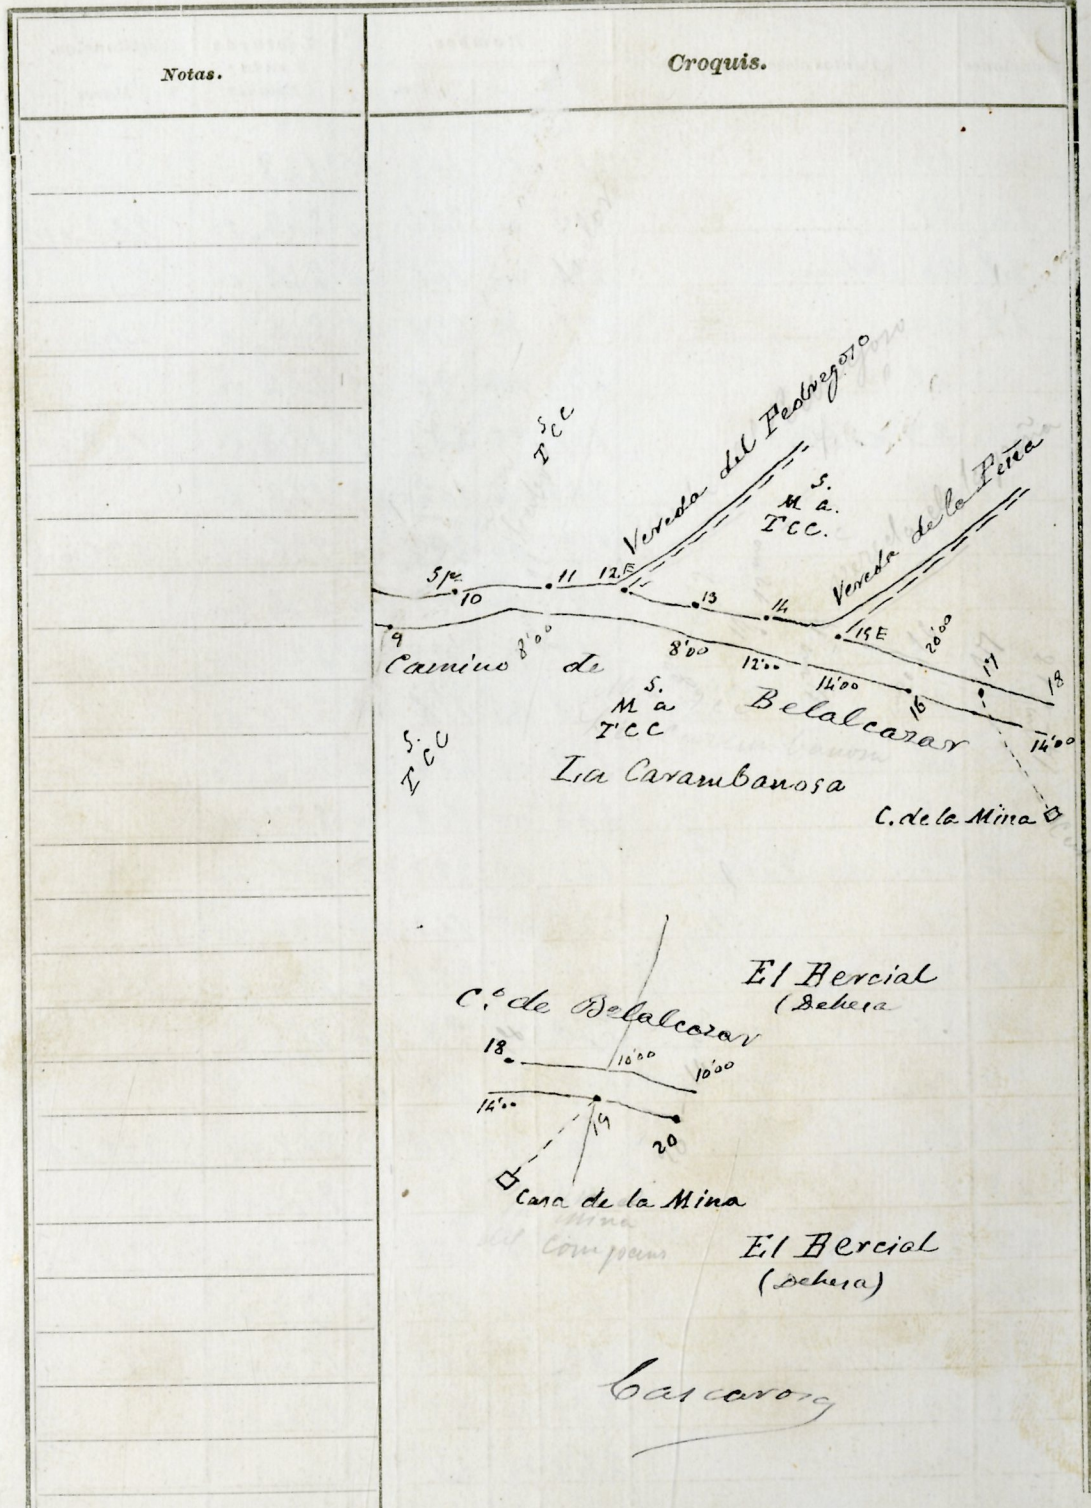 Notas.
Croquis.
S
T C C
Vereda del Pedregoso
S.
M a.
T C C.
Vereda de la Peña
10
11
12 E
13
14
15 E
20'00
17
18
9
8'00
8'00
12'00
14'00
16
14'00
Camino de Belalcazar
S.
M a
T C C
S.
T C C
La Carambanosa
C. de la Mina
El Bercial
(Dehesa
C.º de Belalcazar
18
10'00
10'00
14'00
19
20
Casa de la Mina
Mina
del
El Bercial
(Dehesa)